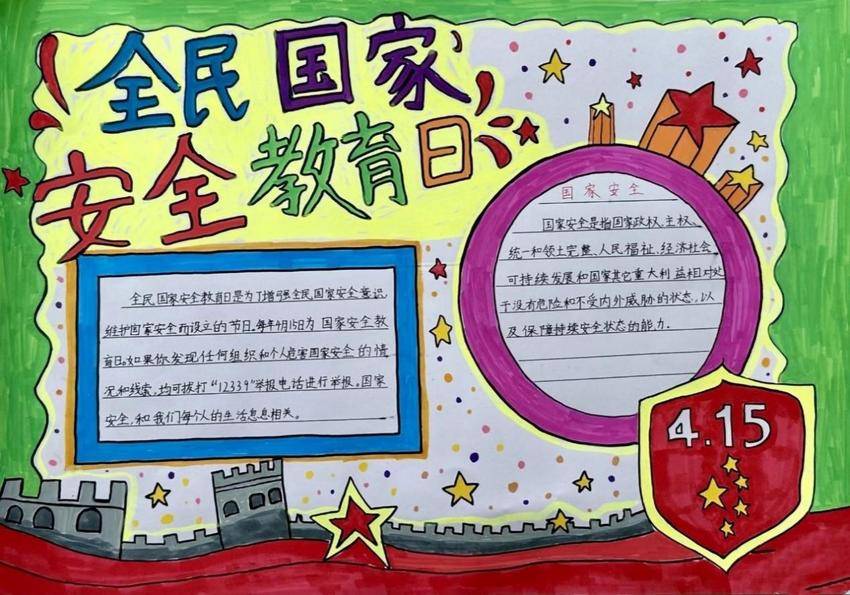 全民国家
安全教育日
国家安全
国家安全是指国家政权、主权、
统一和领土完整、人民福祉、经济社会
可持续发展和国家其它重大利益相对处
于没有危险和不受内外威胁的状态,以
及保障持续安全状态的能力.
全民国家安全教育日是为了增强全民国家安全意识,
维护国家安全而设立的节日。每年4月15日为国家安全教
育日。如果你发现任何组织和个人危害国家安全的情
况和线索,均可拨打“12339”举报电话进行举报。国家
安全,和我们每个人的生活息息相关。
4.15